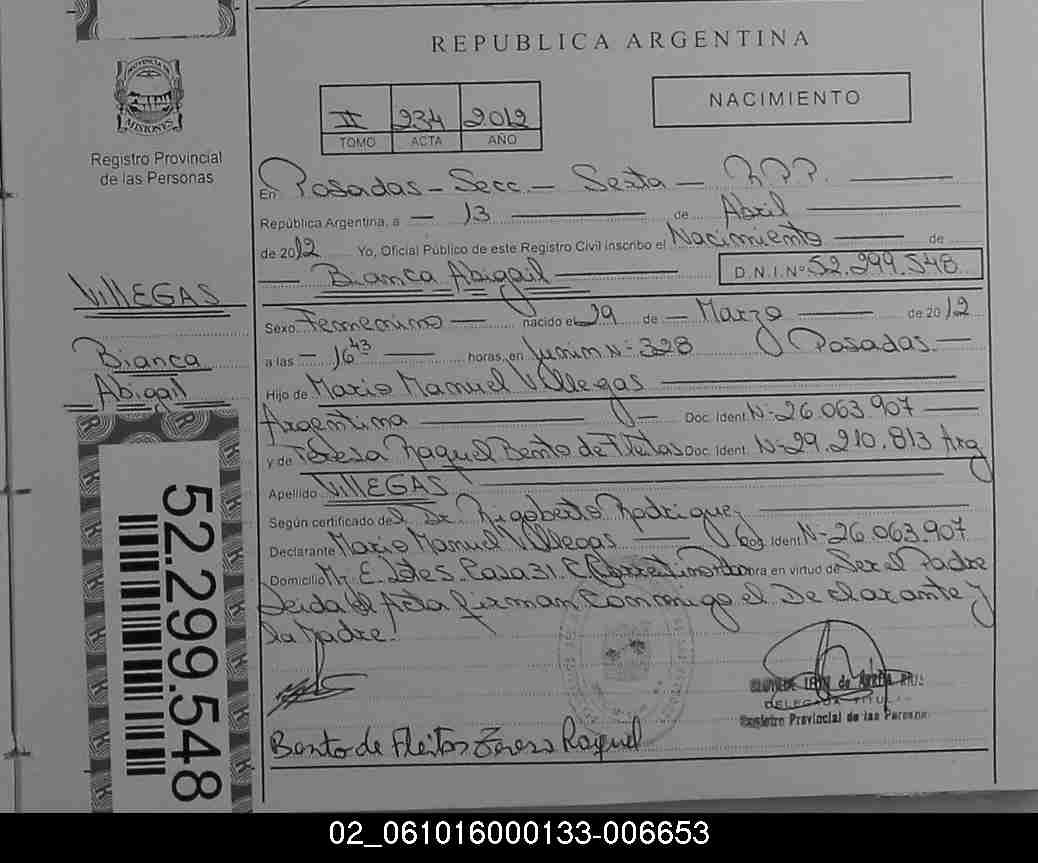 REPUBLICA ARGENTINA
PROVINCIA DE
MISIONES
Registro Provincial
de las Personas
II 234 2012
TOMO ACTA AÑO
NACIMIENTO
En Posadas - Secc. - Sexta -
República Argentina, a - 13 de Abril
de 2012 Yo, Oficial Público de este Registro Civil inscribo el Nacimiento de
Bianca Abigail D.N.I.Nº 52.299.548
VIllEGAS
Bianca
Abigail
Sexo Femenino - nacido el 29 de - Marzo de 2012
a las - 16 43 horas, en Junin Nº 328 Posadas -
Hijo de Mario Manuel Villegas
Argentina Doc. Ident. Nº 26.063.907
y de Teresa Raquel Bento de Fleitas Doc. Ident. Nº 29.210.813 Arg
Apellido VIllEGAS
Según certificado del Dr. Rigoberto Rodriguez
Declarante Mario Manuel Villegas Doc. Ident. Nº 26.063.907
Domicilio Mz E. Lotes. Casa 31. obra en virtud de Ser el Padre
Leida el Acta firman Conmigo el Declarante y
la Madre.
DELEGADA TITULAR
Registro Provincial de las Personas
Bento de Fleitas Teresa Raquel
52.299.548
02_061016000133-006653